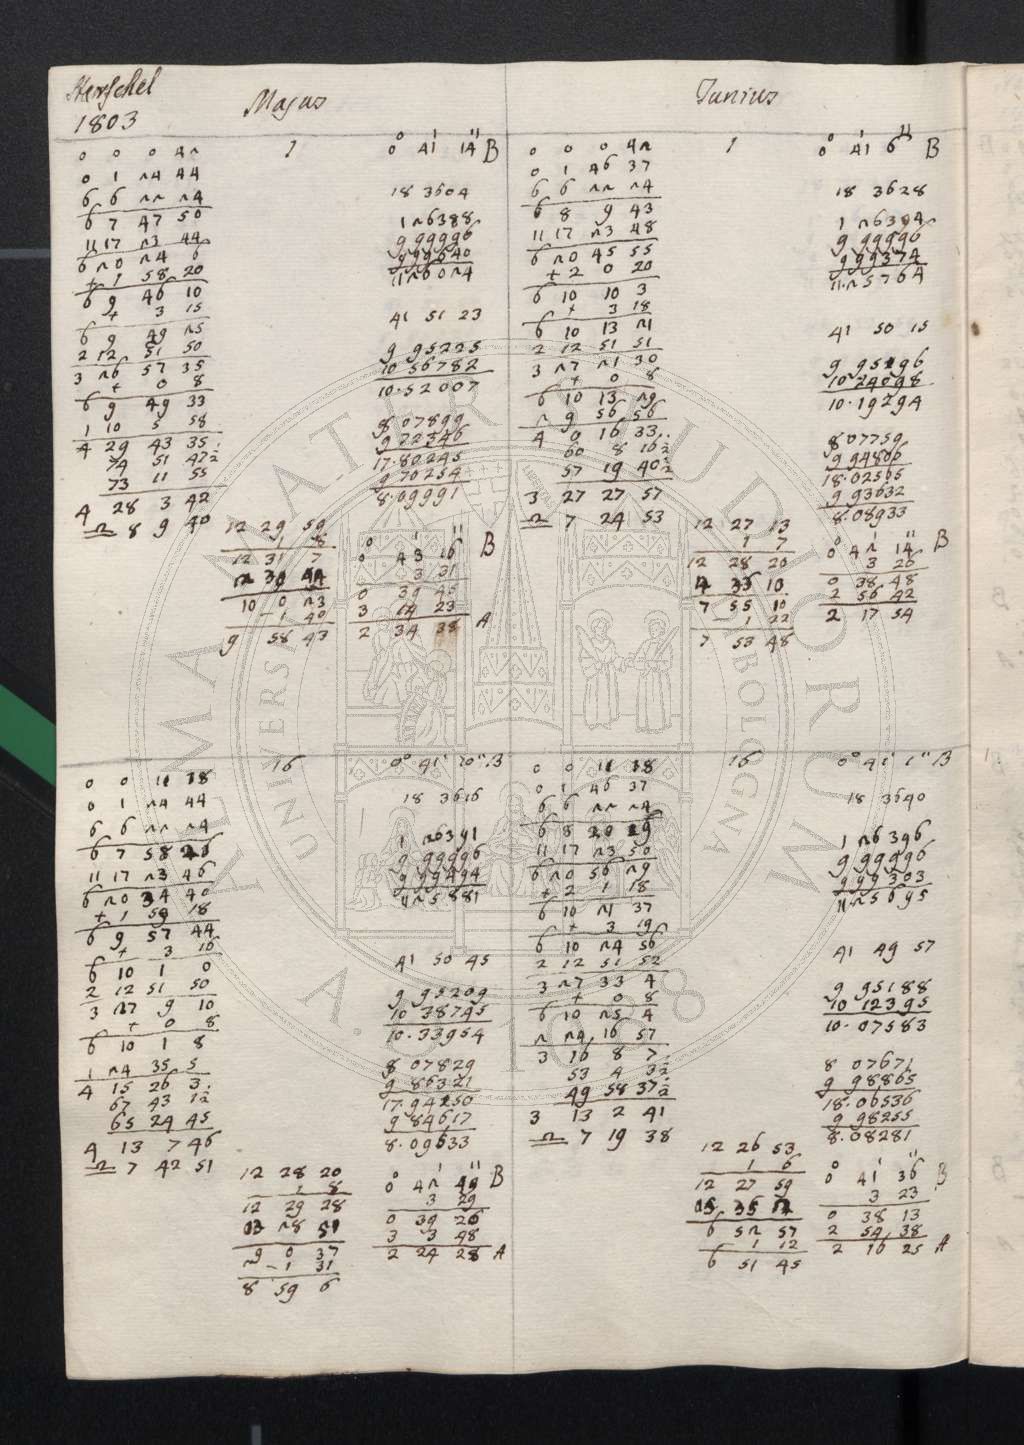 Herschel
1803
Majus
1
0 0 0 42
0 1 24 44
6 6 22 24
6 7 47 50
11 17 23 44
6 20 24 6
+ 1 58 20
6 9 46 10
+ 3 15
6 9 49 25
2 12 51 50
3 26 57 35
+ 0 8
6 9 49 33
1 10 5 58
4 29 43 35
74 51 47½
73 11 55
4 28 3 42
♎ 8 9 40
0° 41' 14" B
18 3604
1 26388
9 99996
9 99640
11.26024
41 51 23
9 95225
10 56782
10.52007
8 07899
9 72346
17.80245
9 70254
8.09991
12 29 59
1 8
12 31 7
10 0 23
- 1 40
9 58 43
0° 43' 16" B
3 31
0 39 45
3 14 23
2 34 38 A
Junius
1
0 0 0 42
0 1 46 37
6 6 22 24
6 8 9 43
11 17 23 48
6 20 45 55
+ 2 0 20
6 10 10 3
+ 3 18
6 10 13 21
2 12 51 51
3 27 21 30
+ 0 8
6 10 13 29
2 9 56 56
4 0 16 33
60 8 16½
57 19 40½
3 27 27 57
♎ 7 24 53
0° 41' 6" B
18 3628
1 26394
9 99996
9 99374
11.25764
41 50 15
9 95196
10 24098
10.19294
8 07759
9 94806
18.02565
9 93632
8.08933
12 27 13
1 7
12 28 20
4 33 10
7 55 10
1 22
7 53 48
0° 42' 14" B
3 26
0 38 48
2 56 42
2 17 54
16
0 0 11 38
0 1 24 44
6 6 22 24
6 7 58 26
11 17 23 46
6 20 34 40
+ 1 59 18
6 9 57 44
+ 3 16
6 10 1 0
2 12 51 50
3 27 9 10
+ 0 8
6 10 1 8
1 24 35 5
4 15 26 3
67 43 1½
65 24 45
4 13 7 46
♎ 7 42 51
0° 41' 10" B
18 3616
1 26391
9 99996
9 99494
11.25881
41 50 45
9 95209
10 38745
10.33954
8 07829
9 86321
17.94250
9 84617
8.09633
12 28 20
1 8
12 29 28
9 0 37
- 1 31
8 59 6
0° 42' 49" B
3 29
0 39 26
3 3 48
2 24 28 A
16
0 0 11 38
0 1 46 37
6 6 22 24
6 8 20 29
11 17 23 50
6 20 56 29
+ 2 1 18
6 10 21 37
+ 3 19
6 10 24 56
2 12 51 52
3 27 33 4
+ 0 8
6 10 25 4
2 24 16 57
3 16 8 7
53 4 3½
49 58 37½
3 13 2 41
♎ 7 19 38
0° 41' 1" B
18 3640
1 26396
9 99996
9 99303
11.25695
41 49 57
9 95188
10 12395
10.07583
8 07671
9 98865
18.06536
9 98255
8.08281
12 26 53
1 6
12 27 59
6 52 57
1 12
6 51 45
0° 41' 36" B
3 23
0 38 13
2 54 38
2 16 25 A
ALMA MATER STUDIORUM
UNIVERSITÀ DI BOLOGNA
A.D. 1088